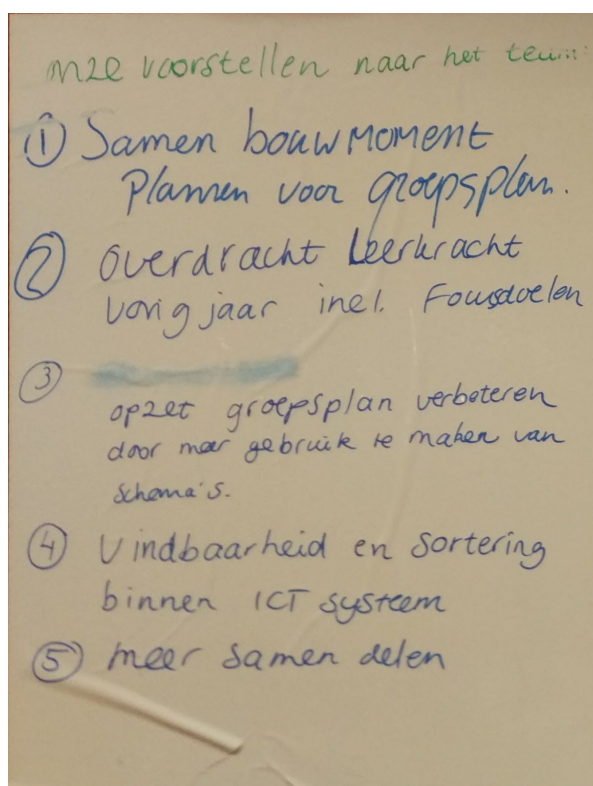 onze voorstellen naar het team:
① Samen bouwmoment
Plannen voor groepsplan.
② overdracht Leerkracht
vorig jaar incl. Focusdoelen
③
opzet groepsplan verbeteren
door meer gebruik te maken van
schema's.
④ Vindbaarheid en sortering
binnen ICT systeem
⑤ meer samen delen